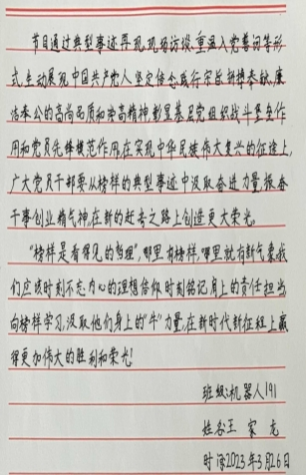 节目通过典型事迹再现,现场访谈,重温入党誓词等形
式,生动展现中国共产党人坚定信念践行宗旨,拼搏奉献,廉
洁奉公的高尚品质和崇高精神,彰显基层党组织战斗堡垒作
用和党员先锋模范作用,在实现中华民族伟大复兴的征途上,
广大党员干部要从榜样的典型事迹中汲取奋进力量,振奋
干事创业精气神,在新的赶考之路上创造更大荣光。
"榜样是看得见的哲理",哪里有榜样,哪里就有新气象,我
们应该时刻不忘内心的理想信仰,时刻铭记肩上的责任担当
向榜样学习,汲取他们身上的"牛"力量,在新时代新征程上赢
得更加伟大的胜利和荣光!
班级:机器人191
姓名:王家龙
时间:2023年3月26日